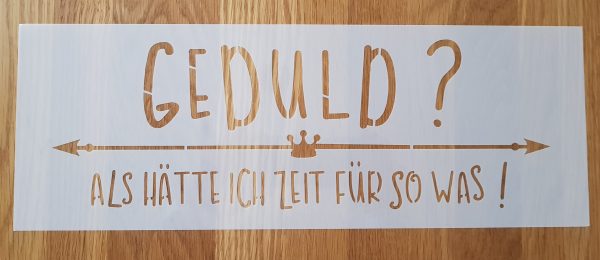 GEDULD ?
ALS HÄTTE ICH ZEIT FÜR SO WAS !